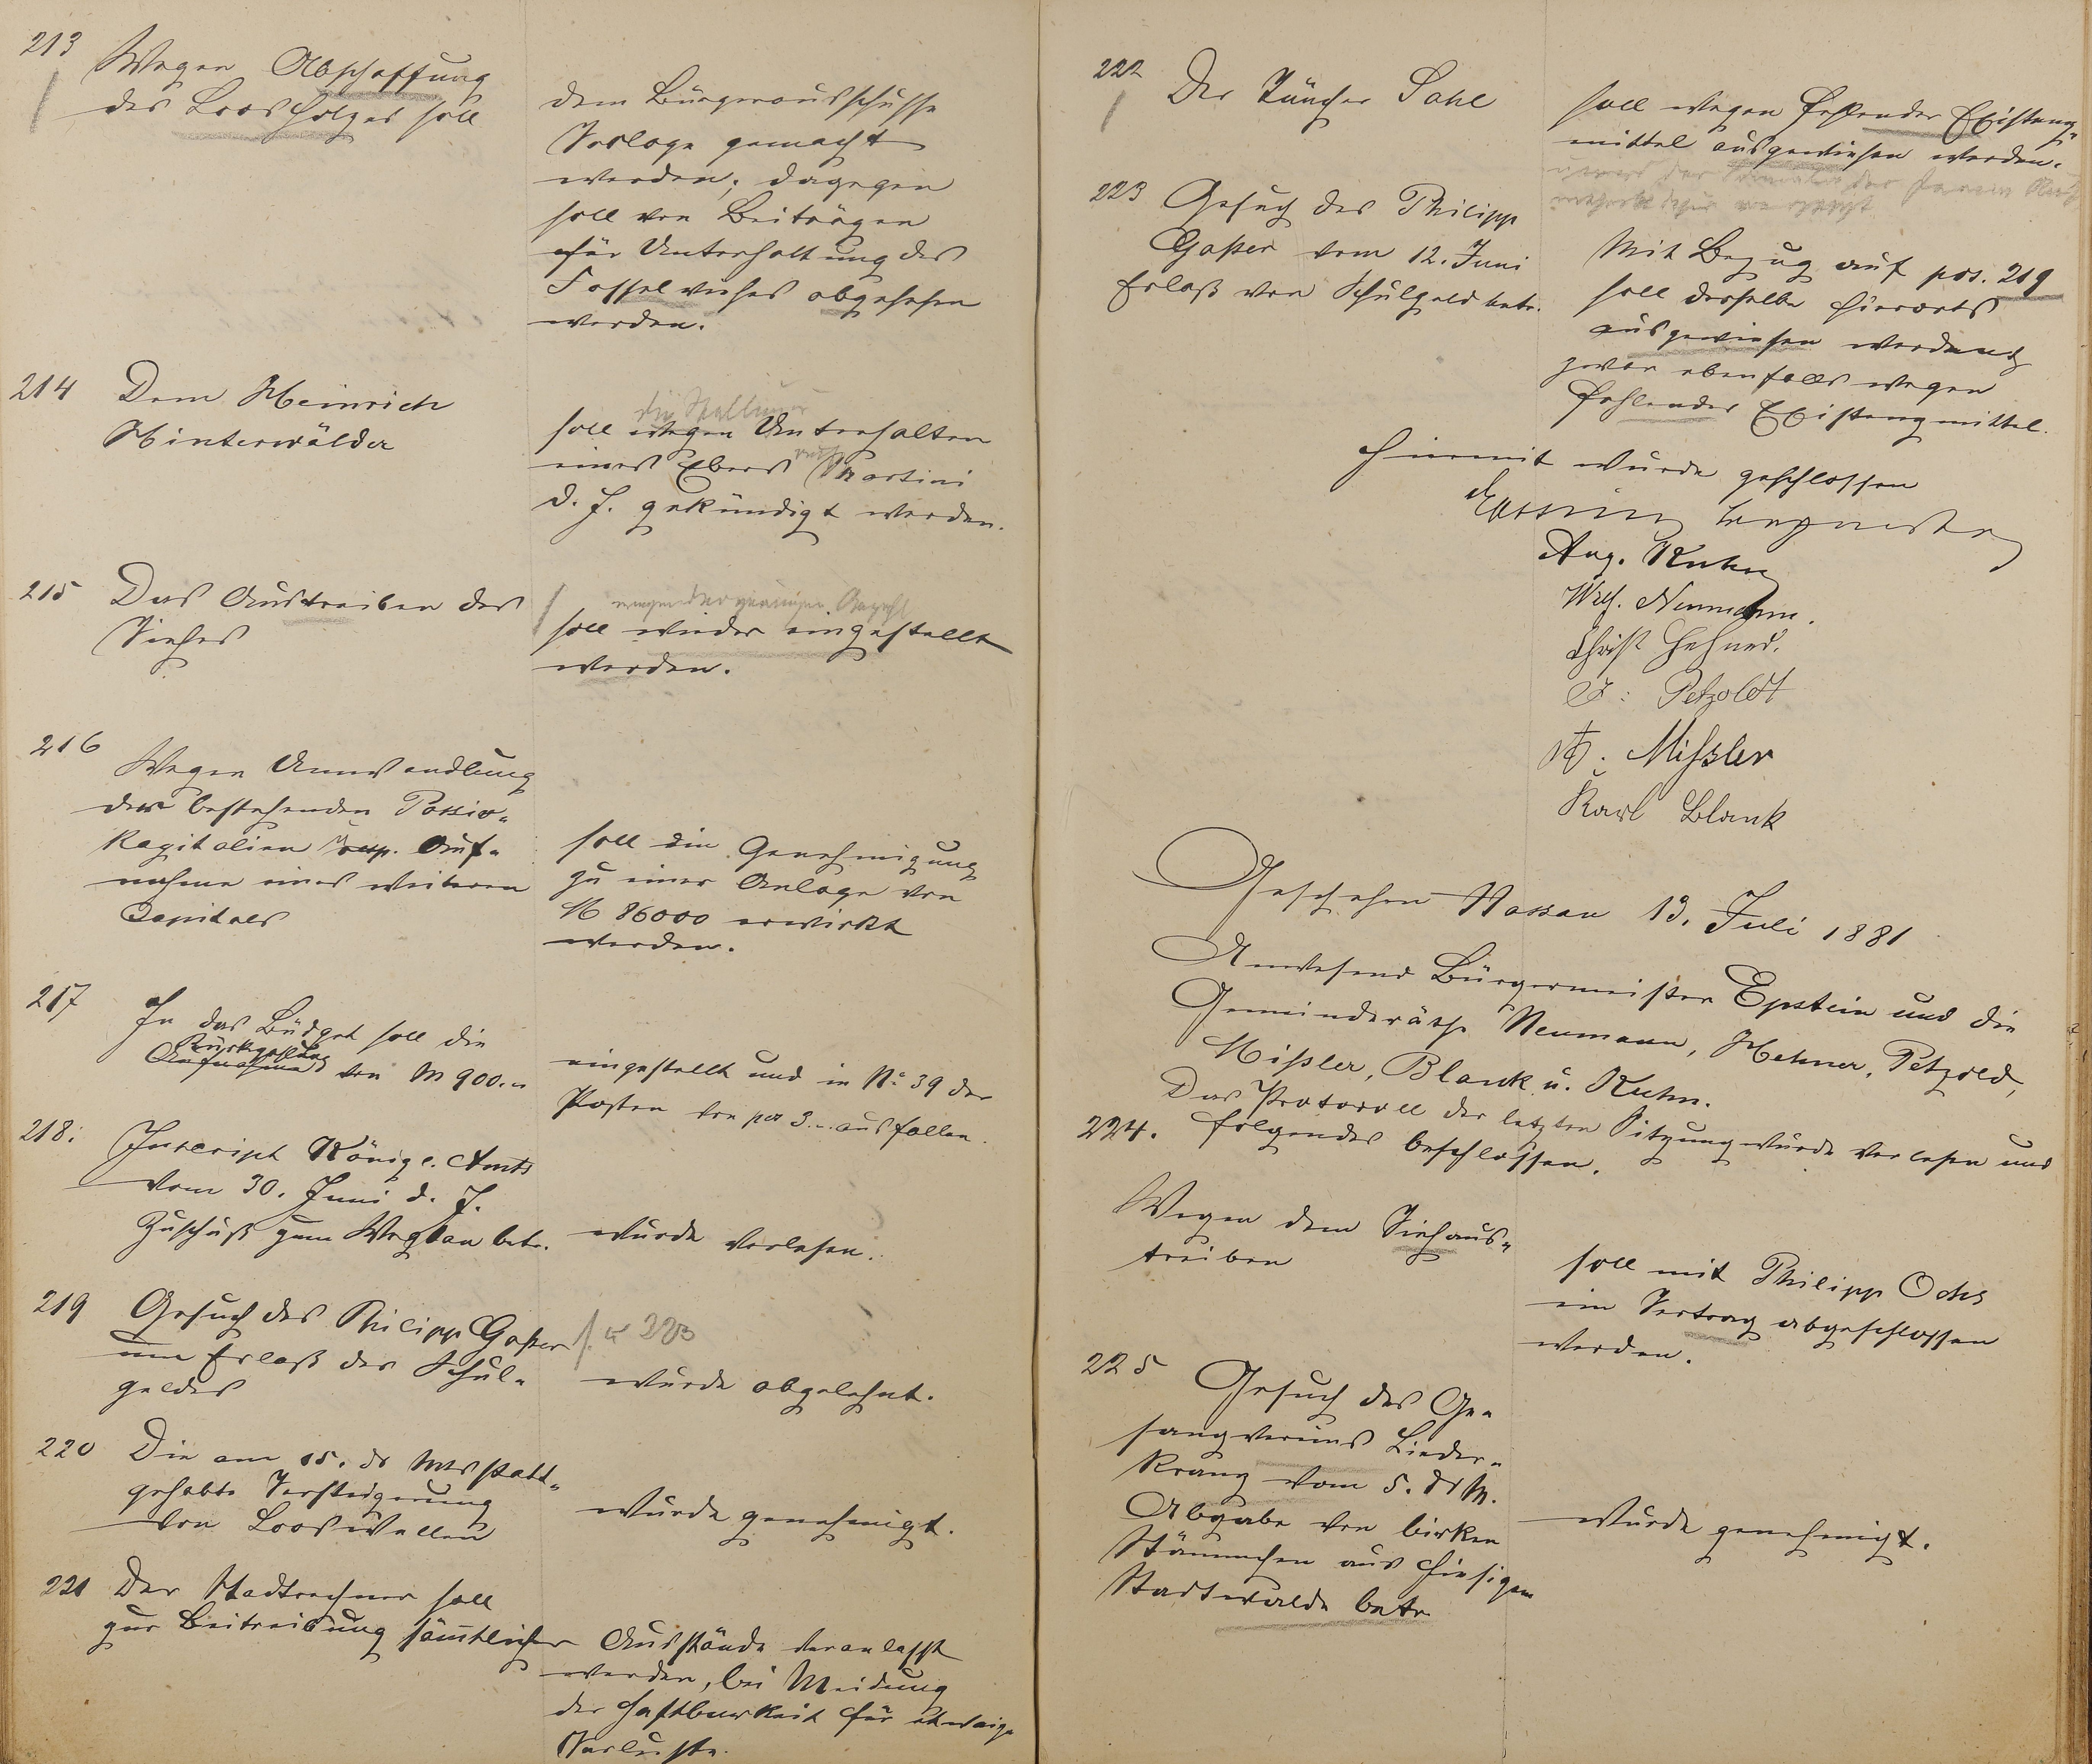 213
Wegen Abschaffung
des Loosholzes soll
dem Bürgerausschusse
Vorlage gemacht
werden; dagegen
soll von Beiträgen
für Unterhaltung des
Fasselviehes abgesehen
werden.
214
Dem Heinrich
Hinterwälder
soll wegen Unterhalten
eines Ebers Martini
d. J. gekündigt werden.
215 Das Austreiben des
Viehes
wegen der geringen Anzahl
soll wieder eingestellt
werden.
216
Wegen Umwandlung
der bestehenden Passiv-
kapitalien resp. Auf-
nahme eines weiteren
Capitals
soll die Genehmigung
zu einer Anlage von
M 86000 erwirkt
werden.
217
In das Büdget soll die
Rückzahlung
Aufnahme von M 900.-
eingestellt und in No 39 der
Posten von pos 3 ausfallen.
218.
Inscript Königl. Amts
vom 30. Juni d. J.
Zuschuß zum Wegbau betr.
wurde verlesen.
219 Gesuch des Philipp Gaßer
um Erlaß des Schul-
geldes
223
wurde abgelehnt.
220 Die am 15. ds Mts statt-
gehabte Versteigerung
von Looswellen
wurde genehmigt.
221 Der Stadtrechner soll
zur Beitreibung sämtlicher
Ausstände veranlasst
werden, bei Meidung
der Haftbarkeit für etwaige
Verluste.
222
Der Tüncher Sahl
soll wegen fehlender Existenz-
mittel ausgewiesen werden.
223 Gesuch des Philipp
Gaßer vom 12. Juni
Erlaß von Schulgeld betr.
Mit Bezug auf pos. 219
soll derselbe hierorts
ausgewiesen werden u.
zwar ebenfalls wegen
fehlender Existenzmittel.
Hiermit wurde geschlossen
Epstein Bürgermeister
Aug. Kuhn
Wilh. Neumann.
Christ Hehner.
F. Petzoldt
Mißler
Karl Blank
Geschehen Nassau 13. Juli 1881
Anwesend Bürgermeister Epstein und die
Gemeinderäthe Neumann, Hehner, Petzold,
Mißler, Blank u. Kuhn.
Das Protocoll der letzten Sitzung wurde verlesen und
224. folgendes beschlossen.
Wegen dem Viehaus-
treiben
soll mit Philipp Ochs
ein Vertrag abgeschlossen
werden.
225
Gesuch des Ge-
sangvereins Lieder-
kranz vom 5. ds M.
Abgabe von birken
Stämmchen aus hiesigem
Stadtwalde betr.
wurde genehmigt.